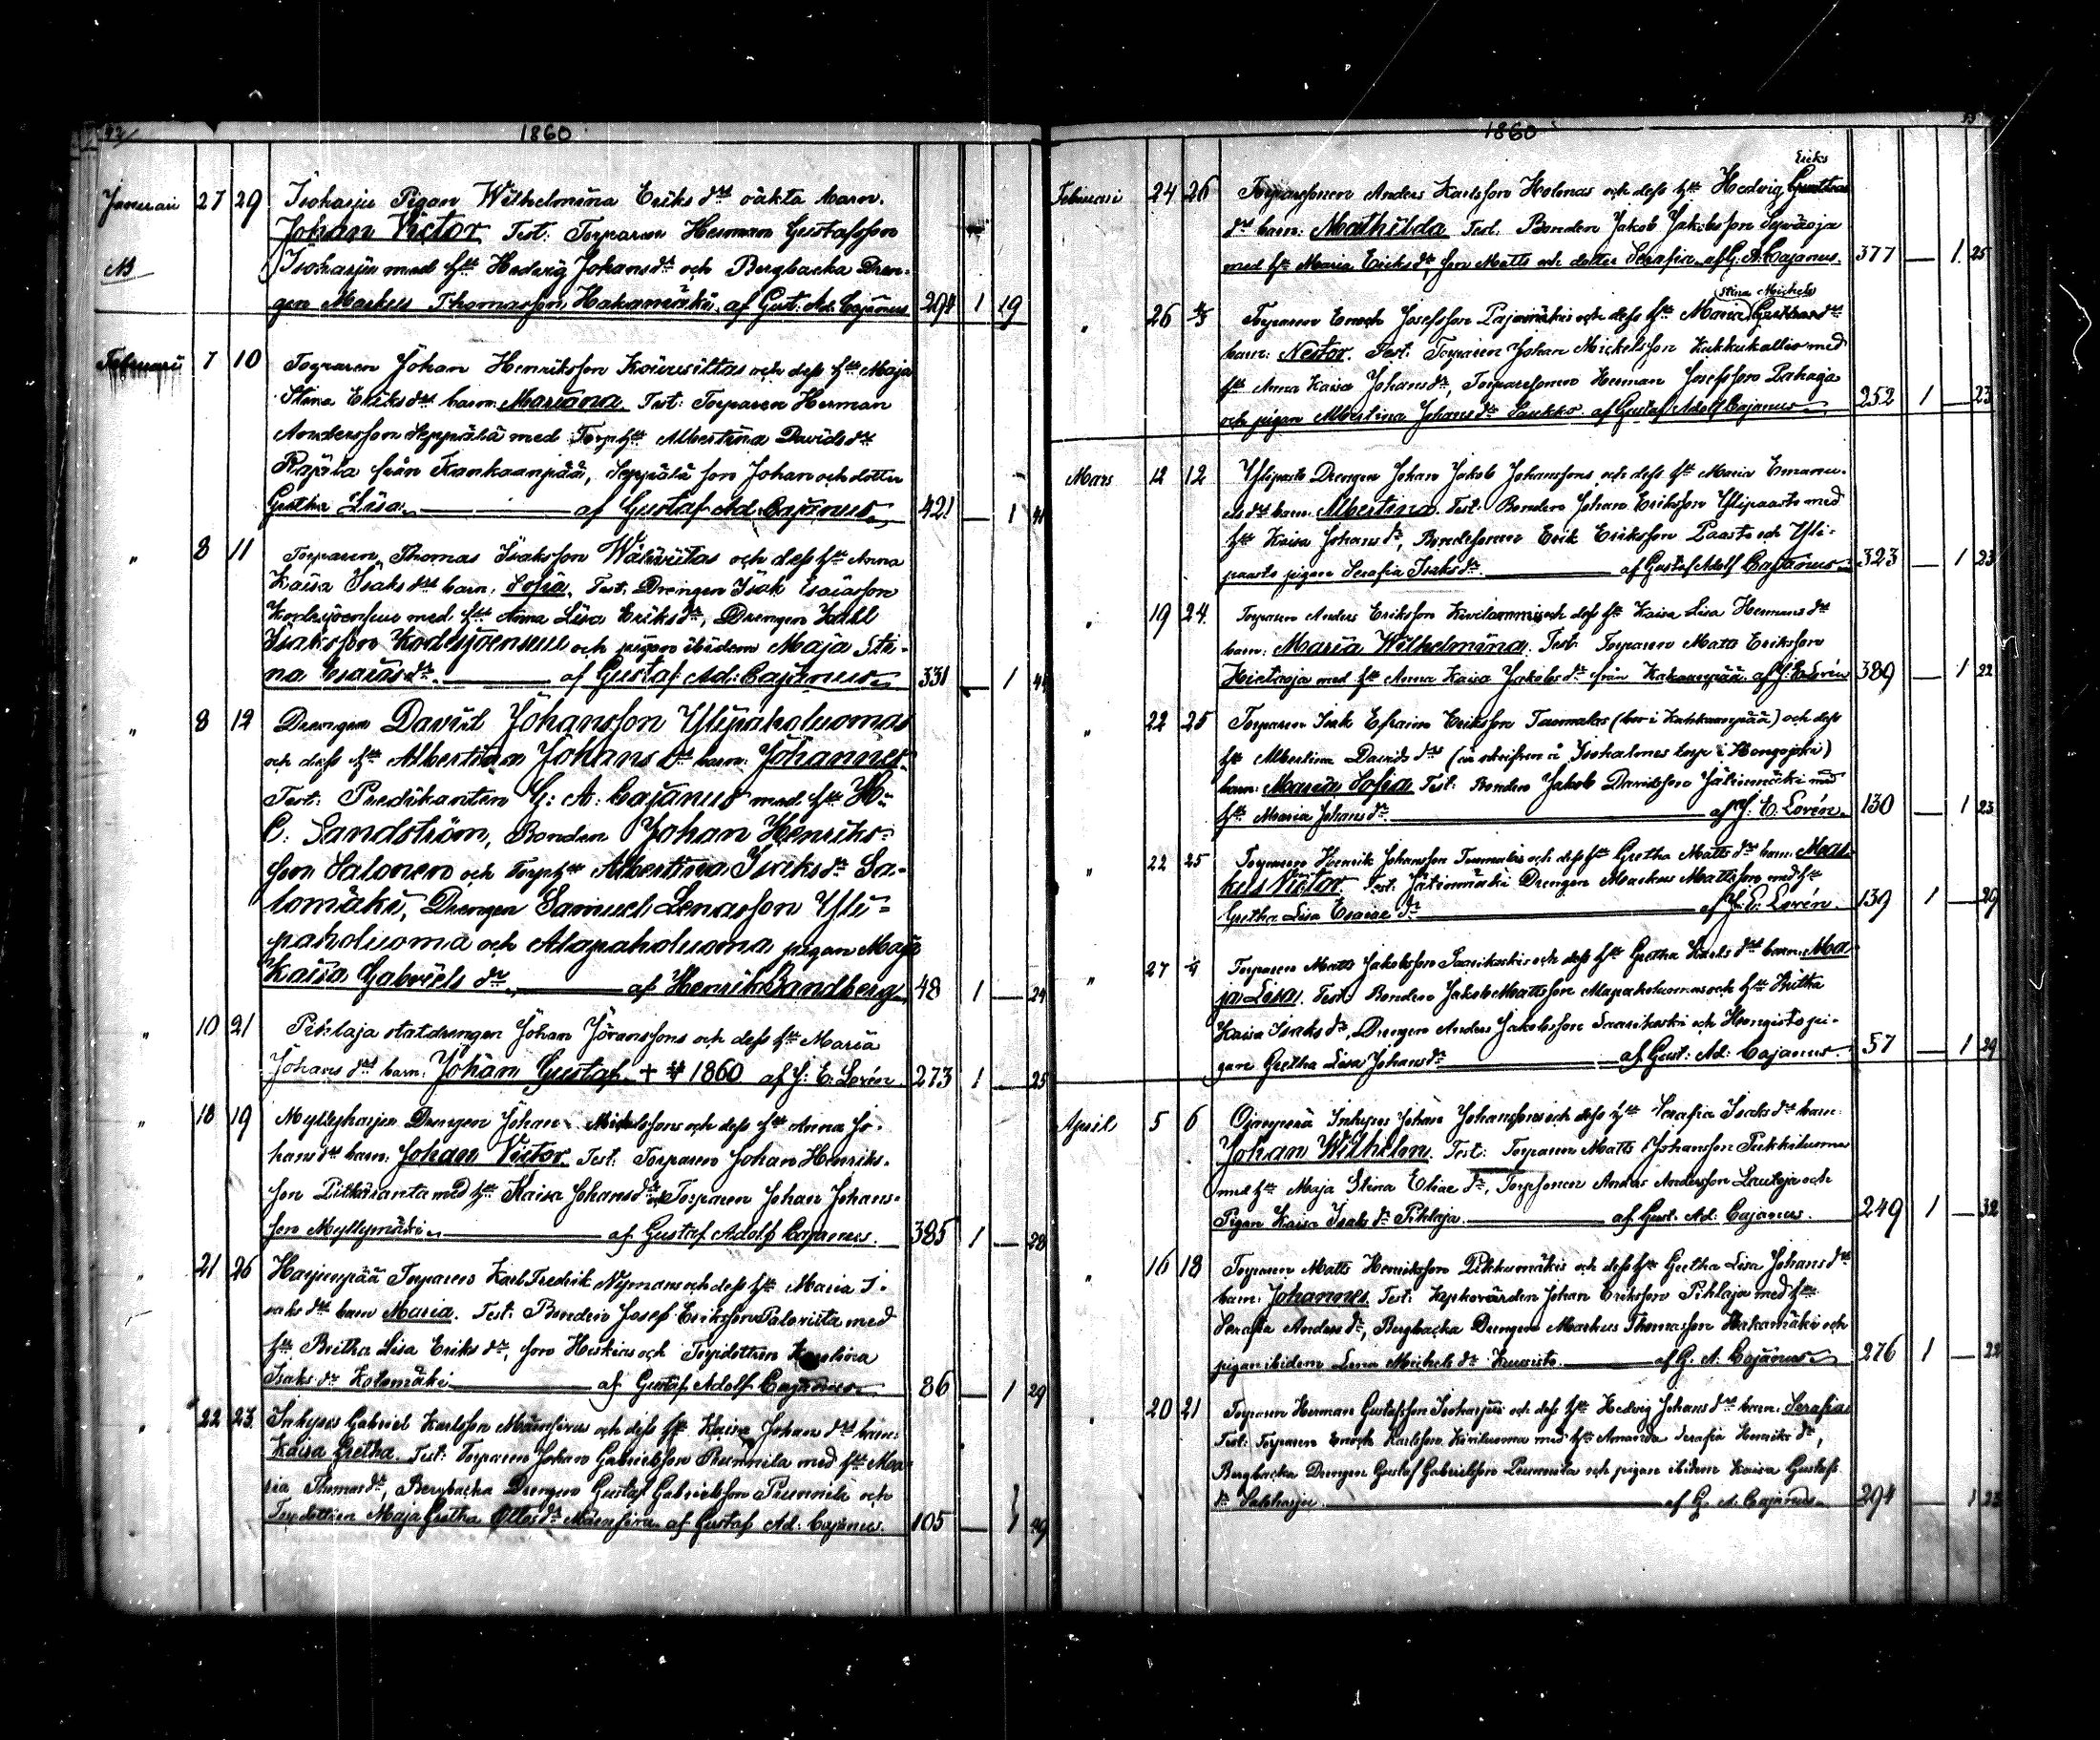 92
1860
Januari 27 29 Isoharju Pigan Wilhelmina Eriks drs oäkta barn.
Johan Victor Test: Torparen Herman Gustafsson
NB Isoharju med hu Hedvig Johansdr och Bergbacka Dren-
gen Markus Thomasson Hakamäki af Gust. Ad. Cajanus 294 1 19
Februari 7 10 Torparen Johan Henriksson och dess hu Maja
Stina Eriks drs barn Mariana. Test: Torparen Herman
Andersson Seppälä med Torphu Albertina Davids dr
Rajala från Kankaanpää, Seppälä son Johan och dotter
Gretha Lisa. af Gustaf Ad. Cajanus 421 1 41
" 8 11 Torparen Thomas Isaksson och dess hu Anna
Kaisa Isaks drs barn: Sofia. Test. Drengen Isak Esaiasson
med hu Anna Lisa Eriks dr, Drengen Kalle
Isaksson och pigan ibidem Maja Sti-
na Esaias dr. af Gustaf Ad: Cajanus 331 1 44
" 8 12 Drengen David Johansson Ylipaholuomas
och dess hu Albertina Johans drs barn: Johannes.
Test: Predikanten G: A: Cajanus med hu H:
C: Sandström, Bonden Johan Henriks-
son Salonen och Torphu Albertina Isaks dr Sa-
lomäki, Drengen Samuel Lenasson Yli-
paholuoma och Alapaholuoma pigan Maja
Kaisa Gabriels dr. af Henrik Sandberg 48 1 24
" 10 21 Pihlaja statdrengen Johan Göranssons och dess hu Maria
Johans drs barn: Johan Gustaf. + 1860 af J. E. Lorén 273 1 25
" 18 19 Myllyharju Drengen Johan Michelssons och dess hu Anna Jo-
hans drs barn: Johan Victor. Test: Torparen Johan Henriks-
son Pitkäranta med hu Kaisa Johans dr, Torparen Johan Johans-
son Myllymäki af Gustaf Adolf Cajanus. 385 1 28
" 21 26 Harjunpää Torparen Karl Fredrik Nymans och dess hu Maria I-
saks drs barn Maria. Test: Bonden Josef Eriksson Paloviita med
hu Britha Lisa Eriks dr, son Heskias och Torpdottren Karolina
Isaks dr Kolomäki af Gustaf Adolf Cajanus 86 1 29
" 22 23 Inhyses Gabriel Karlsson Mansivus och dess hu Kaisa Johans drs barn:
Kaisa Gretha. Test: Torparen Johan Gabrielsson Prunnila med hu Ma-
ria Thomas dr, Bergbacka Drengen Gustaf Gabrielsson Prunnila och
Torpdottren Maja Gretha Ottos dr af Gustaf Ad: Cajanus. 105 1 29
93
1860
Eriks
Februari 24 26 Torparesonen Anders Karlsson Holmas och dess hu Hedvig
drs barn: Mathilda Test. Bonden Jakob Jakobsson Syväoja
med hu Maria Eriks dr, son Matts och dotter Serafia af G. A. Cajanus. 377 1 25
Stina Michels
" 26 4/3 Torparen Enoch Josefsson Pajamäkis och dess hu Maria
barn: Nestor. Test: Torparen Johan Mickelsson Kukkuskallio med
hu Anna Kaisa Johans dr, Torparesonen Herman Josefsson Pahaoja
och pigan Albertina Johans dr Laukko. af Gustaf Adolf Cajanus 252 1 23
Mars 12 12 Ylipaasto Drengen Johan Jakob Johanssons och dess hu Maria Emanu-
els drs barn Albertina. Test: Bonden Johan Eriksson Ylipaasto med
hu Kaisa Johans dr, Bondesonen Erik Eriksson Paasto och Yli-
paasto pigan Serafia Isaks dr. af Gustaf Adolf Cajanus 323 1 23
" 19 24 Torparen Anders Eriksson Kivilammis och dess hu Kaisa Lisa Hermans drs
barn: Maria Wilhelmina. Test: Torparen Matts Eriksson
Hietaoja med hu Anna Kaisa Jakobs dr från Kankaanpää. af J. E. Lorén 389 1 22
" 22 25 Torparen Isak Efraim Eriksson Tuomalas (bor i Kankaanpää) och dess
hu Albertina Davids drs (är skrifven å Isoholmes torp i Hongojoki)
barn: Maria Sofia Test: Bonden Jakob Davidsson Jätinmäki med
hu Maria Johans dr. af J: E. Lorén. 130 1 23
" 22 25 Torparen Henrik Johansson Tuomalas och dess hu Gretha Matts drs barn: Mar-
kus Victor. Test: Jätinmäki Drengen Markus Mattsson med hu
Gretha Lisa Esaiae dr af J. E. Lorén. 139 1 29
" 27 1/4 Torparen Matts Jakobsson Saarikoskis och dess hu Gretha Karls drs barn: Ma-
ja Lisa. Test. Bonden Jakob Mattsson Alapaholuomas och hu Britha
Kaisa Isaks dr, Drengen Anders Jakobsson Saarikoski och Hongisto pi-
gan Gretha Lisa Johans dr af Gust: Ad: Cajanus. 57 1 29
April 5 6 Ojanperä Inhyses Johan Johanssons och dess hu Serafia Isaks drs barn:
Johan Wilhelm. Test: Torparen Matts Johansson Pukkiluoma
med hu Maja Stina Eliae dr, Torpsonen Anders Andersson Lautoja och
Pigan Kaisa Isaks dr Pihlaja. af Gust. Ad: Cajanus. 249 1 32
" 16 18 Torparen Matts Henriksson Pikkumäkis och dess hu Gretha Lisa Johans drs
barn: Johannes. Test: Kyrkovärden Johan Eriksson Pihlaja med hu
Serafia Anders dr, Bergbacka Drengen Markus Thomasson Hakamäki och
pigan ibidem Lena Michels dr Kuusisto. af G. A. Cajanus 276 1 22
" 20 21 Torparen Herman Gustafsson Isoharjus och dess hu Hedvig Johans drs barn: Serafia
Test: Torparen Enoch Karlsson Kiviluoma med hu Amanda Serafia Henriks dr,
Bergbacka Drengen Gustaf Gabrielsson Prunnila och pigan ibidem Kaisa Gustafs
dr Saloharju. af G. A. Cajanus. 294 1 23